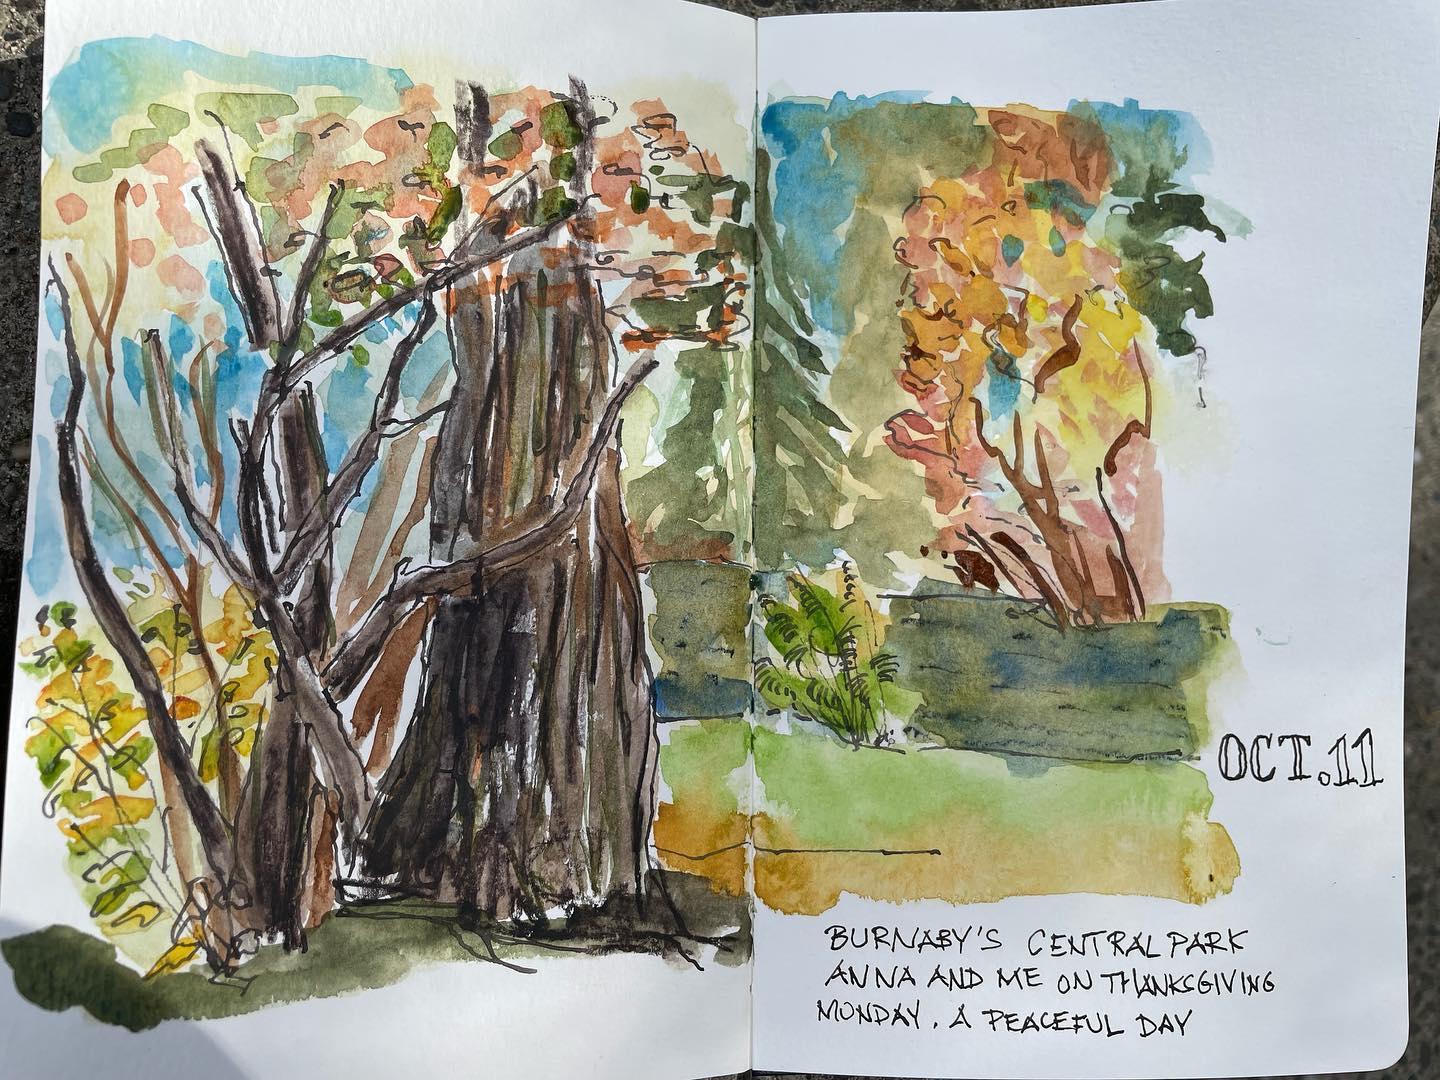 OCT.11
BURNABY'S CENTRAL PARK
ANNA AND ME ON THANKSGIVING
MONDAY. A PEACEFUL DAY